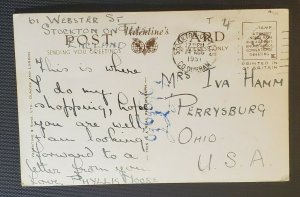 61 WEBSTER ST
STOCKTON ON TEES
ENGLAND
T 4
POST CARD
Valentine's
SENDING YOU GREETINGS
ONLY
STOCKTON
1951
CO. DURHAM
PRINTED IN
GREAT
BRITAIN
This is where
I do my
shopping, hope
you are well
I am looking
forward to a
letter from you
Love, PHYLLIS MOOSE
MRS IVA HAMM
PERRYSBURG
OHIO
U.S.A.